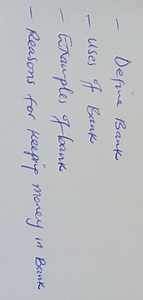 - Define Bank
- Uses of Bank
- Examples of bank
- Reasons for keeping money in Bank